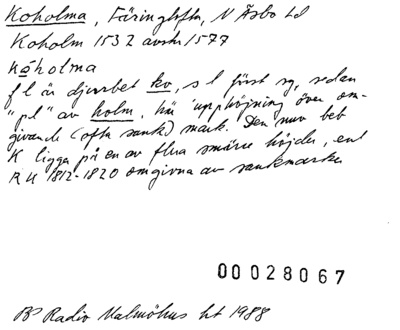 Koholma, Färingtofta, N Åsbo hd
Koholm 1532 avskr 1577
Kóholma
f l är djurbet ko, s l först sg, sedan
"pl" av holm, här 'upphöjning över om-
givande (ofta sank) mark. Den nuv beb
K ligger på en av flera smärre höjder, enl
RK 1812-1820 omgivna av sankmarker
00028067
BP Radio Malmöhus ht 1988